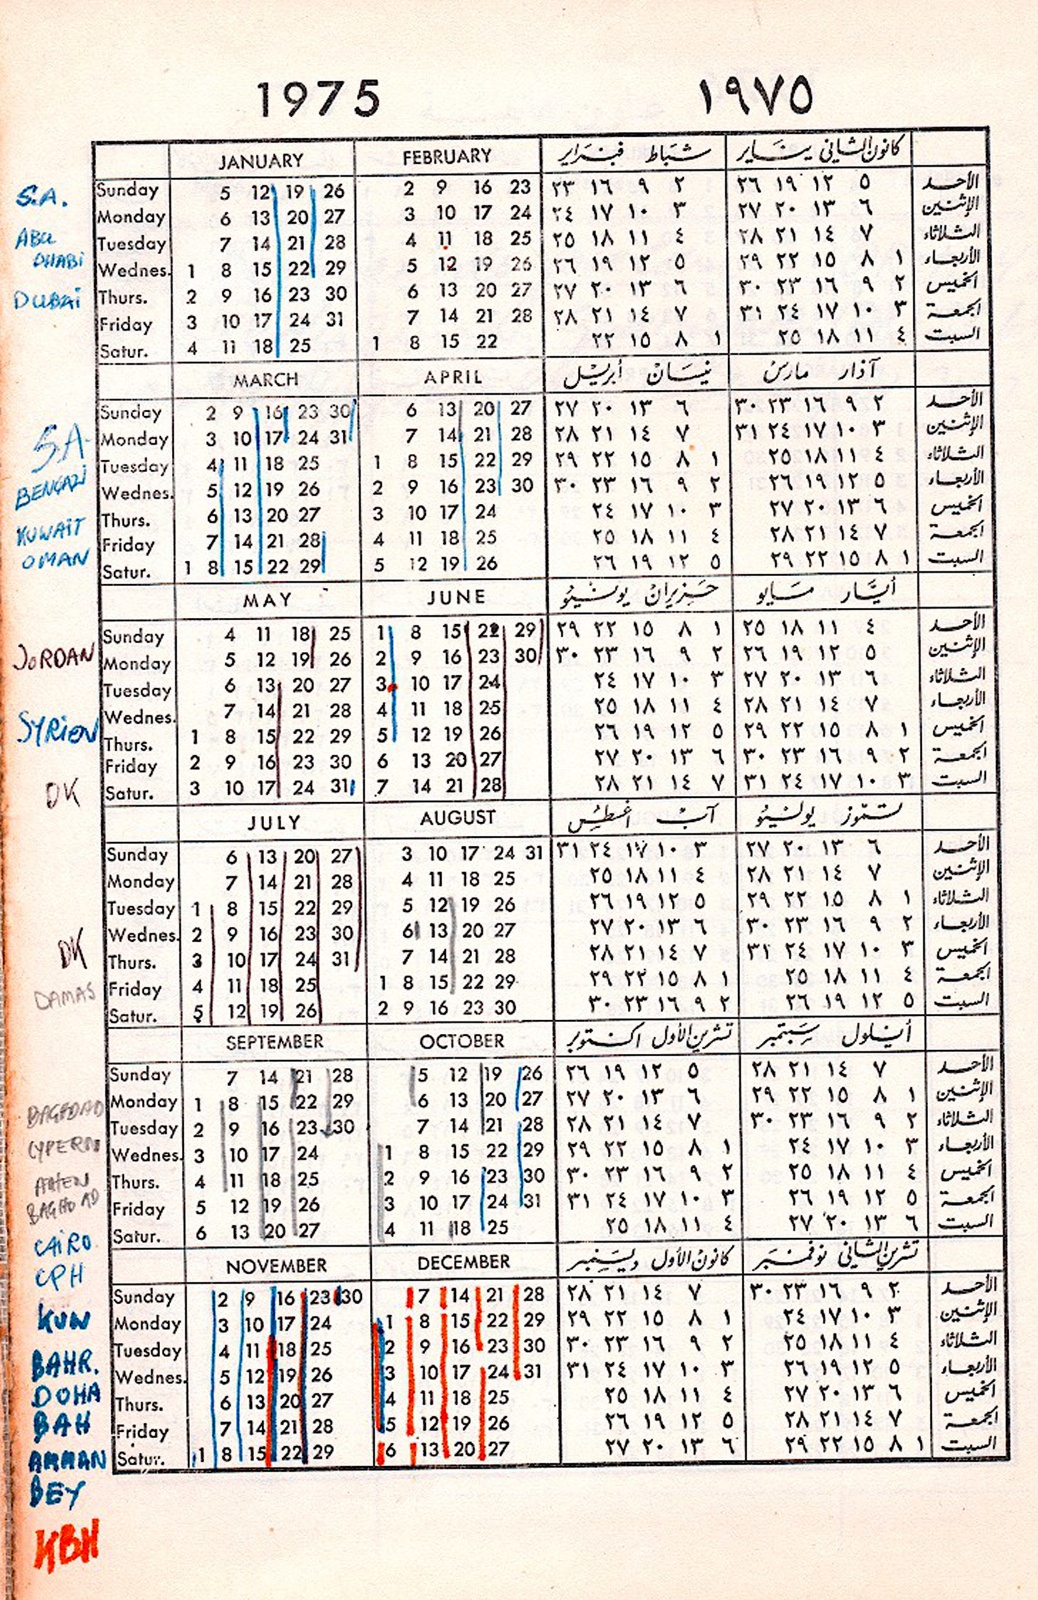 1975 ١٩٧٥
JANUARY FEBRUARY شباط فبراير كانون الثاني يناير
S.A. Sunday 5 12 19 26 2 9 16 23 ٢٣ ١٦ ٩ ٢ ٢٦ ١٩ ١٢ ٥ الأحد
Monday 6 13 20 27 3 10 17 24 ٢٤ ١٧ ١٠ ٣ ٢٧ ٢٠ ١٣ ٦ الإثنين
ABU Tuesday 7 14 21 28 4 11 18 25 ٢٥ ١٨ ١١ ٤ ٢٨ ٢١ ١٤ ٧ الثلاثاء
DHABi Wednes. 1 8 15 22 29 5 12 19 26 ٢٦ ١٩ ١٢ ٥ ٢٩ ٢٢ ١٥ ٨ ١ الأربعاء
DUBAi Thurs. 2 9 16 23 30 6 13 20 27 ٢٧ ٢٠ ١٣ ٦ ٣٠ ٢٣ ١٦ ٩ ٢ الخميس
Friday 3 10 17 24 31 7 14 21 28 ٢٨ ٢١ ١٤ ٧ ٣١ ٢٤ ١٧ ١٠ ٣ الجمعة
Satur. 4 11 18 25 1 8 15 22 ٢٢ ١٥ ٨ ١ ٢٥ ١٨ ١١ ٤ السبت
MARCH APRIL نيسان أبريل آذار مارس
Sunday 2 9 16 23 30 6 13 20 27 ٢٧ ٢٠ ١٣ ٦ ٣٠ ٢٣ ١٦ ٩ ٢ الأحد
S.A. Monday 3 10 17 24 31 7 14 21 28 ٢٨ ٢١ ١٤ ٧ ٣١ ٢٤ ١٧ ١٠ ٣ الإثنين
Tuesday 4 11 18 25 1 8 15 22 29 ٢٩ ٢٢ ١٥ ٨ ١ ٢٥ ١٨ ١١ ٤ الثلاثاء
BENGAZI Wednes. 5 12 19 26 2 9 16 23 30 ٣٠ ٢٣ ١٦ ٩ ٢ ٢٦ ١٩ ١٢ ٥ الأربعاء
KUWAIT Thurs. 6 13 20 27 3 10 17 24 ٢٤ ١٧ ١٠ ٣ ٢٧ ٢٠ ١٣ ٦ الخميس
OMAN Friday 7 14 21 28 4 11 18 25 ٢٥ ١٨ ١١ ٤ ٢٨ ٢١ ١٤ ٧ الجمعة
Satur. 1 8 15 22 29 5 12 19 26 ٢٦ ١٩ ١٢ ٥ ٢٩ ٢٢ ١٥ ٨ ١ السبت
MAY JUNE حزيران يونيو أيار مايو
Sunday 4 11 18 25 1 8 15 22 29 ٢٩ ٢٢ ١٥ ٨ ١ ٢٥ ١٨ ١١ ٤ الأحد
JORDAN Monday 5 12 19 26 2 9 16 23 30 ٣٠ ٢٣ ١٦ ٩ ٢ ٢٦ ١٩ ١٢ ٥ الإثنين
Tuesday 6 13 20 27 3 10 17 24 ٢٤ ١٧ ١٠ ٣ ٢٧ ٢٠ ١٣ ٦ الثلاثاء
SYRIEN Wednes. 7 14 21 28 4 11 18 25 ٢٥ ١٨ ١١ ٤ ٢٨ ٢١ ١٤ ٧ الأربعاء
Thurs. 1 8 15 22 29 5 12 19 26 ٢٦ ١٩ ١٢ ٥ ٢٩ ٢٢ ١٥ ٨ ١ الخميس
Friday 2 9 16 23 30 6 13 20 27 ٢٧ ٢٠ ١٣ ٦ ٣٠ ٢٣ ١٦ ٩ ٢ الجمعة
DK Satur. 3 10 17 24 31 7 14 21 28 ٢٨ ٢١ ١٤ ٧ ٣١ ٢٤ ١٧ ١٠ ٣ السبت
JULY AUGUST آب اغسطس تموز يوليو
Sunday 6 13 20 27 3 10 17 24 31 ٣١ ٢٤ ١٧ ١٠ ٣ ٢٧ ٢٠ ١٣ ٦ الأحد
Monday 7 14 21 28 4 11 18 25 ٢٥ ١٨ ١١ ٤ ٢٨ ٢١ ١٤ ٧ الإثنين
Tuesday 1 8 15 22 29 5 12 19 26 ٢٦ ١٩ ١٢ ٥ ٢٩ ٢٢ ١٥ ٨ ١ الثلاثاء
Wednes. 2 9 16 23 30 6 13 20 27 ٢٧ ٢٠ ١٣ ٦ ٣٠ ٢٣ ١٦ ٩ ٢ الأربعاء
DK Thurs. 3 10 17 24 31 7 14 21 28 ٢٨ ٢١ ١٤ ٧ ٣١ ٢٤ ١٧ ١٠ ٣ الخميس
DAMAS Friday 4 11 18 25 1 8 15 22 29 ٢٩ ٢٢ ١٥ ٨ ١ ٢٥ ١٨ ١١ ٤ الجمعة
Satur. 5 12 19 26 2 9 16 23 30 ٣٠ ٢٣ ١٦ ٩ ٢ ٢٦ ١٩ ١٢ ٥ السبت
SEPTEMBER OCTOBER تشرين الأول اكتوبر أيلول سبتمبر
Sunday 7 14 21 28 5 12 19 26 ٢٦ ١٩ ١٢ ٥ ٢٨ ٢١ ١٤ ٧ الأحد
BAGHDAD Monday 1 8 15 22 29 6 13 20 27 ٢٧ ٢٠ ١٣ ٦ ٢٩ ٢٢ ١٥ ٨ ١ الإثنين
Tuesday 2 9 16 23 30 7 14 21 28 ٢٨ ٢١ ١٤ ٧ ٣٠ ٢٣ ١٦ ٩ ٢ الثلاثاء
CYPERN Wednes. 3 10 17 24 1 8 15 22 29 ٢٩ ٢٢ ١٥ ٨ ١ ٢٤ ١٧ ١٠ ٣ الأربعاء
ATHEN Thurs. 4 11 18 25 2 9 16 23 30 ٣٠ ٢٣ ١٦ ٩ ٢ ٢٥ ١٨ ١١ ٤ الخميس
BAGHDAD Friday 5 12 19 26 3 10 17 24 31 ٣١ ٢٤ ١٧ ١٠ ٣ ٢٦ ١٩ ١٢ ٥ الجمعة
CAIRO Satur. 6 13 20 27 4 11 18 25 ٢٥ ١٨ ١١ ٤ ٢٧ ٢٠ ١٣ ٦ السبت
CPH NOVEMBER DECEMBER كانون الأول ديسمبر تشرين الثاني نوفمبر
Sunday 2 9 16 23 30 7 14 21 28 ٢٨ ٢١ ١٤ ٧ ٣٠ ٢٣ ١٦ ٩ ٢ الأحد
KUW Monday 3 10 17 24 1 8 15 22 29 ٢٩ ٢٢ ١٥ ٨ ١ ٢٤ ١٧ ١٠ ٣ الإثنين
BAHR. Tuesday 4 11 18 25 2 9 16 23 30 ٣٠ ٢٣ ١٦ ٩ ٢ ٢٥ ١٨ ١١ ٤ الثلاثاء
Wednes. 5 12 19 26 3 10 17 24 31 ٣١ ٢٤ ١٧ ١٠ ٣ ٢٦ ١٩ ١٢ ٥ الأربعاء
DOHA Thurs. 6 13 20 27 4 11 18 25 ٢٥ ١٨ ١١ ٤ ٢٧ ٢٠ ١٣ ٦ الخميس
BAH Friday 7 14 21 28 5 12 19 26 ٢٦ ١٩ ١٢ ٥ ٢٨ ٢١ ١٤ ٧ الجمعة
AMMAN Satur. 1 8 15 22 29 6 13 20 27 ٢٧ ٢٠ ١٣ ٦ ٢٩ ٢٢ ١٥ ٨ ١ السبت
BEY
KBH